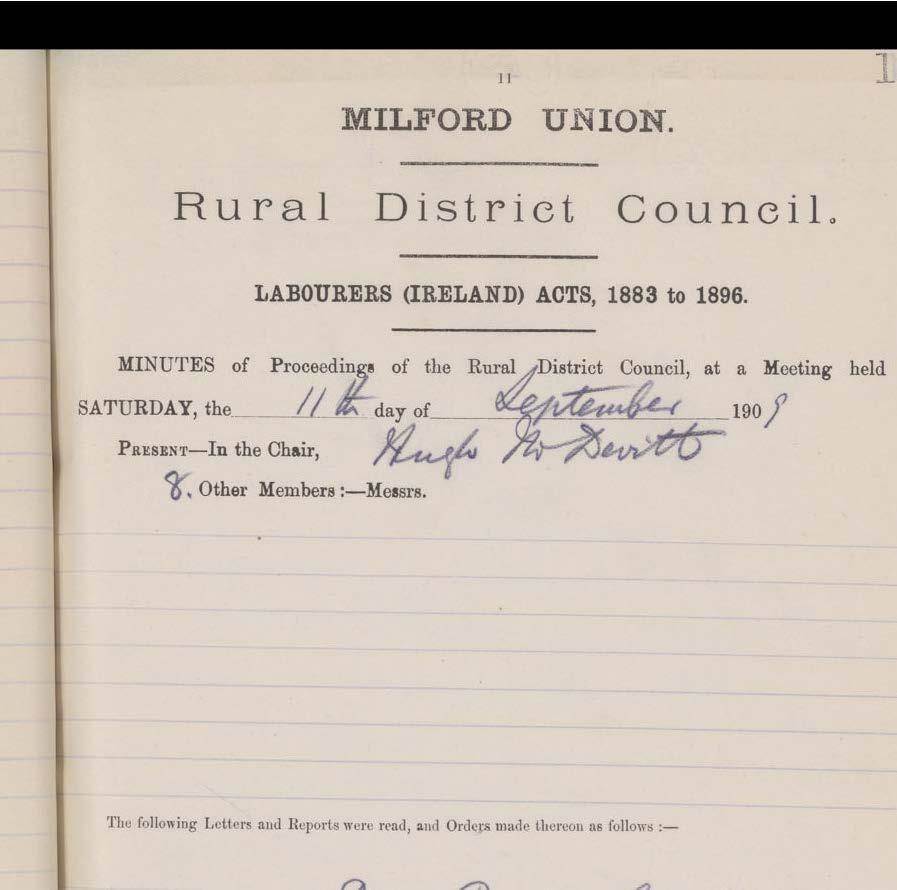 11
1
MILFORD UNION.
Rural District Council.
LABOURERS (IRELAND) ACTS, 1883 to 1896.
MINUTES of Proceedings of the Rural District Council, at a Meeting held
SATURDAY, the 11th day of September 1909
PRESENT—In the Chair, Hugh Mc Devitt
8. Other Members :—Messrs.
The following Letters and Reports were read, and Orders made thereon as follows :—